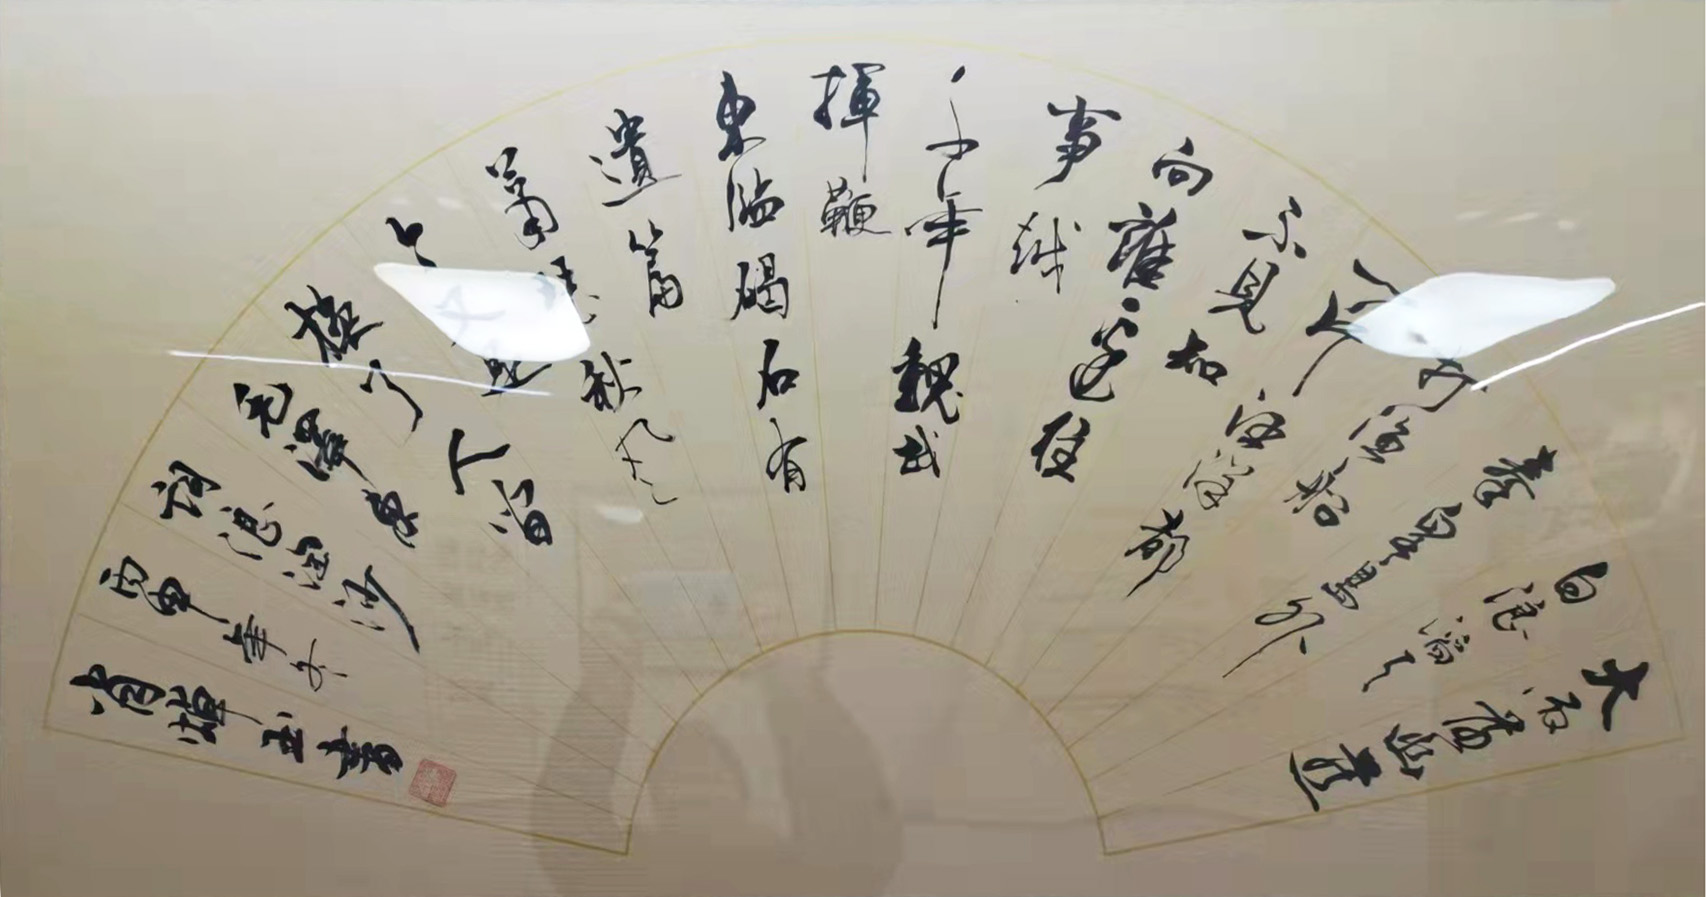 大雨落幽燕
白浪滔天
秦皇島外
打漁船
一片汪洋都
不見知
向誰邊往
事越
千年魏武
揮鞭
東臨碣石有
遺篇
蕭瑟秋風
今又是
換了人間
毛澤東
詞浪淘沙
丙申年冬
肖玉書